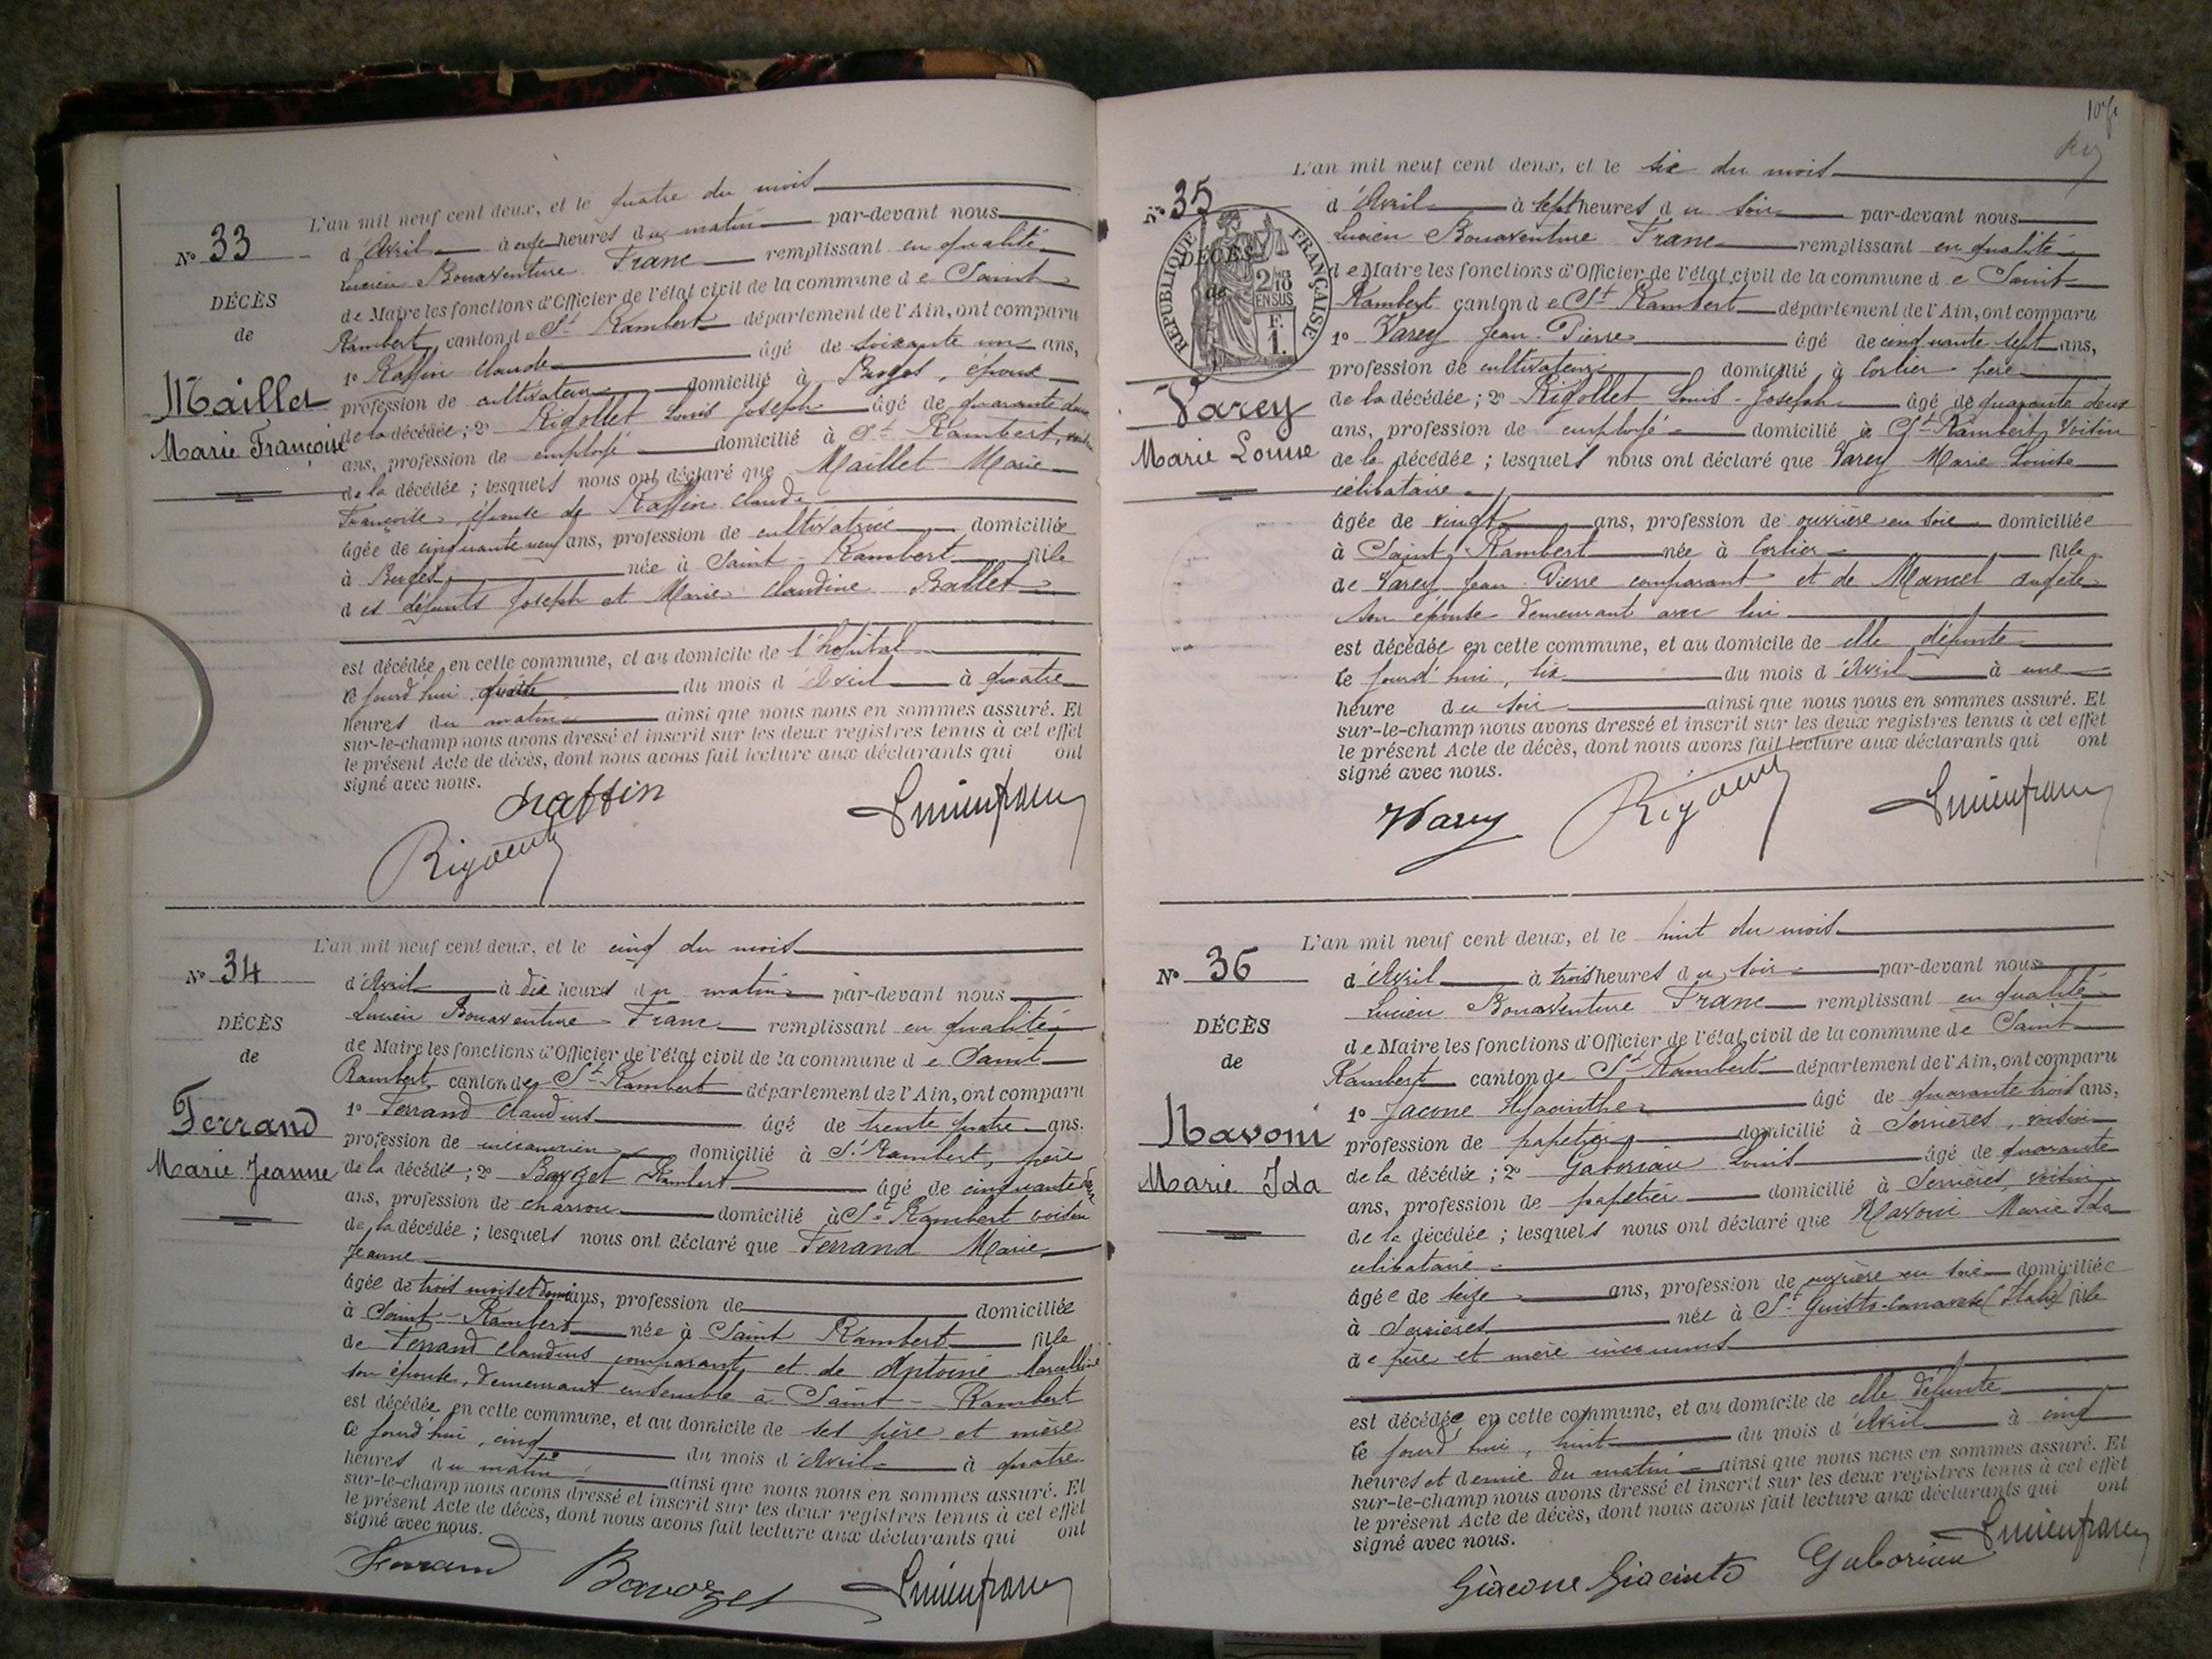 L'an mil neuf cent deux, et le quatre du mois
N° 33
d'Avril à onze heures du matin par-devant nous
Lucien Bonaventure Franc remplissant en qualité
DÉCÈS
de Maire les fonctions d'Officier de l'état civil de la commune de Saint
de
Rambert canton de St Rambert département de l'Ain, ont comparu
1° Raffin Claude âgé de soixante un ans,
Maillet
profession de cultivateur domicilié à Buges, époux
Marie Françoise
de la décédée ; 2° Rigollet Louis Joseph âgé de quarante deux
ans, profession de employé domicilié à St Rambert, voisin
de la décédée ; lesquels nous ont déclaré que Maillet Marie
Françoise, épouse de Raffin Claude
âgée de cinquante neuf ans, profession de cultivatrice domiciliée
à Buges née à Saint-Rambert fille
des défunts Joseph et Marie Claudine Ballet
est décédée en cette commune, et au domicile de l'hôpital
ce jourd'hui quatre du mois d'Avril à quatre
heures du matin ainsi que nous nous en sommes assuré. Et
sur-le-champ nous avons dressé et inscrit sur les deux registres tenus à cet effet
le présent Acte de décès, dont nous avons fait lecture aux déclarants qui ont
signé avec nous.
Raffin
Lucienfranc
L'an mil neuf cent deux, et le cinq du mois
N° 34
d'Avril à dix heures du matin par-devant nous
Lucien Bonaventure Franc remplissant en qualité
DÉCÈS
de Maire les fonctions d'Officier de l'état civil de la commune de Saint
de
Rambert canton de St Rambert département de l'Ain, ont comparu
1° Ferrand Claudius âgé de trente quatre ans.
Ferrand
profession de mécanicien domicilié à St Rambert, père
Marie Jeanne
de la décédée ; 2° Rambert âgé de cinquante deux
ans, profession de charron domicilié à St Rambert voisin
de la décédée ; lesquels nous ont déclaré que Ferrand Marie
Jeanne
âgée de trois mois et demi ans, profession de domiciliée
à Saint-Rambert née à Saint Rambert fille
de Ferrand Claudius comparant et de Antoine Marcelline
son épouse, demeurant ensemble à Saint-Rambert
est décédée en cette commune, et au domicile de ses père et mère
ce jourd'hui, cinq du mois d'Avril à quatre
heures du matin ainsi que nous nous en sommes assuré. Et
sur-le-champ nous avons dressé et inscrit sur les deux registres tenus à cet effet
le présent Acte de décès, dont nous avons fait lecture aux déclarants qui ont
signé avec nous.
Ferrand
Bavozet
Lucienfranc
L'an mil neuf cent deux, et le six du mois
N° 35
d'Avril à sept heures du soir par-devant nous
Lucien Bonaventure Franc remplissant en qualité
RÉPUBLIQUE FRANÇAISE
2/10 EN SUS
F. 1.
DÉCÈS
de Maire les fonctions d'Officier de l'état civil de la commune de Saint
de
Rambert canton de St Rambert département de l'Ain, ont comparu
1° Varey Jean-Pierre âgé de cinquante sept ans,
profession de cultivateur domicilié à Corlier père
Varey
de la décédée ; 2° Rigollet Louis-Joseph âgé de quarante deux
Marie Louise
ans, profession de employé domicilié à St Rambert, voisin
de la décédée ; lesquels nous ont déclaré que Varey Marie Louise
célibataire
âgée de vingt ans, profession de ouvrière en soie domiciliée
à Saint-Rambert née à Corlier fille
de Varey Jean-Pierre comparant et de Mancel Angèle
son épouse demeurant avec lui
est décédée en cette commune, et au domicile de elle défunte
ce jourd'hui, six du mois d'Avril à une
heure du soir ainsi que nous nous en sommes assuré. Et
sur-le-champ nous avons dressé et inscrit sur les deux registres tenus à cet effet
le présent Acte de décès, dont nous avons fait lecture aux déclarants qui ont
signé avec nous.
Varey
Lucienfranc
L'an mil neuf cent deux, et le huit du mois
N° 36
d'Avril à trois heures du soir par-devant nous
Lucien Bonaventure Franc remplissant en qualité
DÉCÈS
de Maire les fonctions d'Officier de l'état civil de la commune de Saint
de
Rambert canton de St Rambert département de l'Ain, ont comparu
1° Jacone Hyacinthe âgé de quarante trois ans,
Navoni
profession de papetier domicilié à Serrières, voisin
Marie Ida
de la décédée ; 2° Gaboriau Louis âgé de quarante
ans, profession de papetier domicilié à Serrières, voisin
de la décédée ; lesquels nous ont déclaré que Navoni Marie Ida
célibataire
âgée de seize ans, profession de ouvrière en soie domiciliée
à Serrières née à St Guisto-Canavese (Italie) fille
de père et mère inconnus
est décédée en cette commune, et au domicile de elle défunte
ce jourd'hui, huit du mois d'Avril à cinq
heures et demie du matin ainsi que nous nous en sommes assuré. Et
sur-le-champ nous avons dressé et inscrit sur les deux registres tenus à cet effet
le présent Acte de décès, dont nous avons fait lecture aux déclarants qui ont
signé avec nous.
Giacone Giacinto
Gaboriau
Lucienfranc